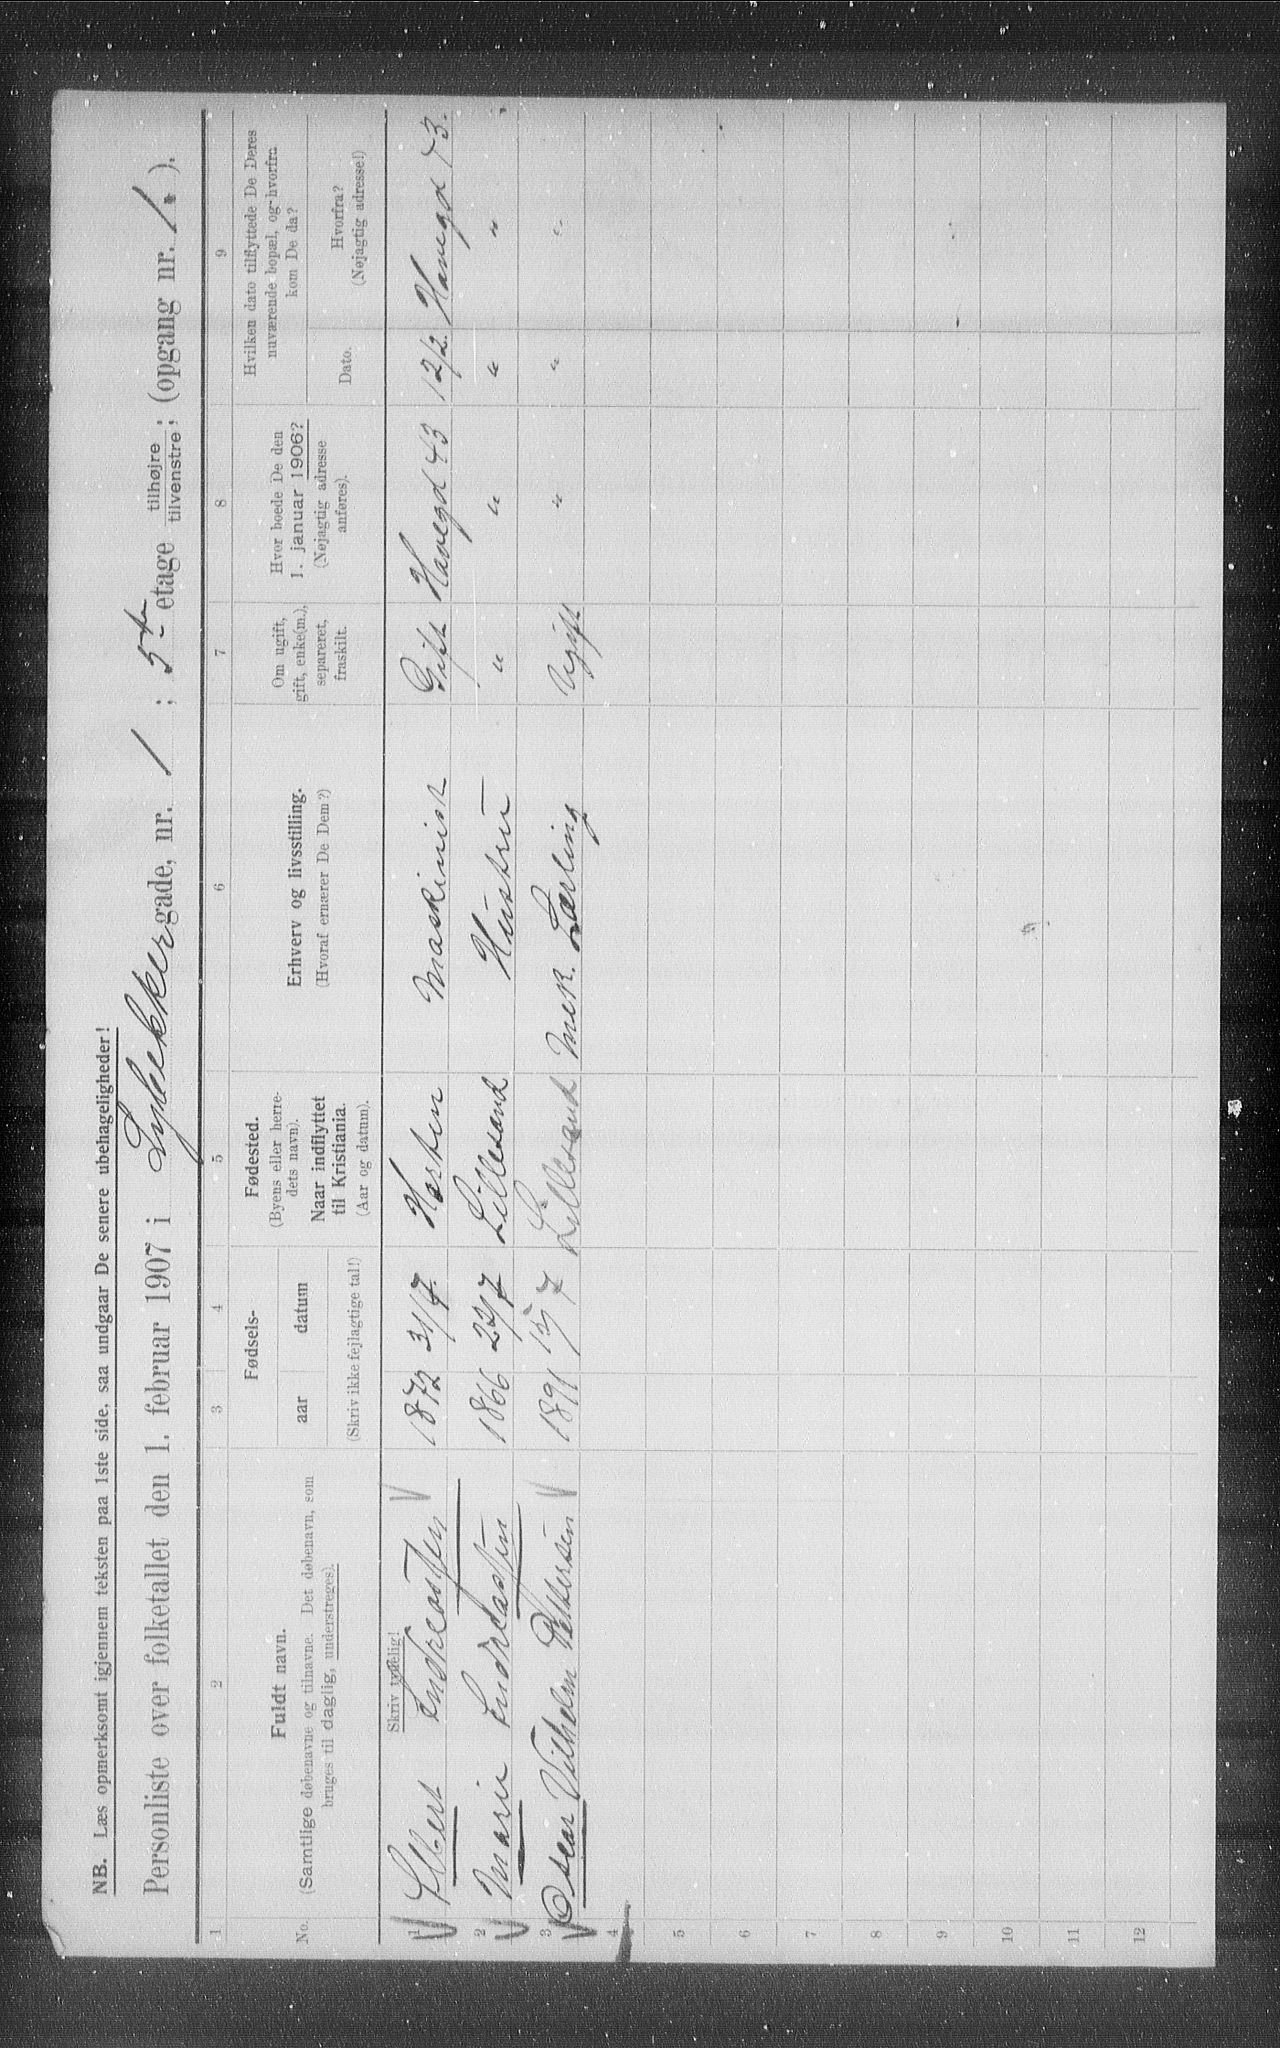 NB. Læs opmerksomt igjennem teksten paa 1ste side, saa undgaar De senere ubehageligheder!
Personliste over folketallet den 1. februar 1907 i Lybekkergade, nr. 1 ; 5te etage tilhøjre / tilvenstre ; (opgang nr. 1 ).
1 2 3 4 5 6 7 8 9
No.
Fuldt navn.
(Samtlige døbenavne og tilnavne. Det døbenavn, som
bruges til daglig, understreges).
Fødsels-
aar datum
(Skriv ikke fejlagtige tal!)
Fødested.
(Byens eller herre-
dets navn).
Naar indflyttet
til Kristiania.
(Aar og datum).
Erhverv og livsstilling.
(Hvoraf ernærer De Dem?)
Om ugift,
gift, enke(m.),
separeret,
fraskilt.
Hvor boede De den
1. januar 1906?
(Nøjagtig adresse
anføres).
Hvilken dato tilflyttede De Deres
nuværende bopæl, og hvorfra
kom De da?
Dato.
Hvorfra?
(Nøjagtig adresse!)
Skriv tydelig!
1 Albert Andreassen 1872 31/7 Horten Maskinist Gift Havegd 43 12/2 Havegd 43.
2 Marie Andreassen 1866 22/7 Lillesand Hustru " " " "
3 Oscar Vilhelm Pettersen 1891 15/7 Lillesand Mek. Lærling Ugift " " "
4
5
6
7
8
9
10
11
12